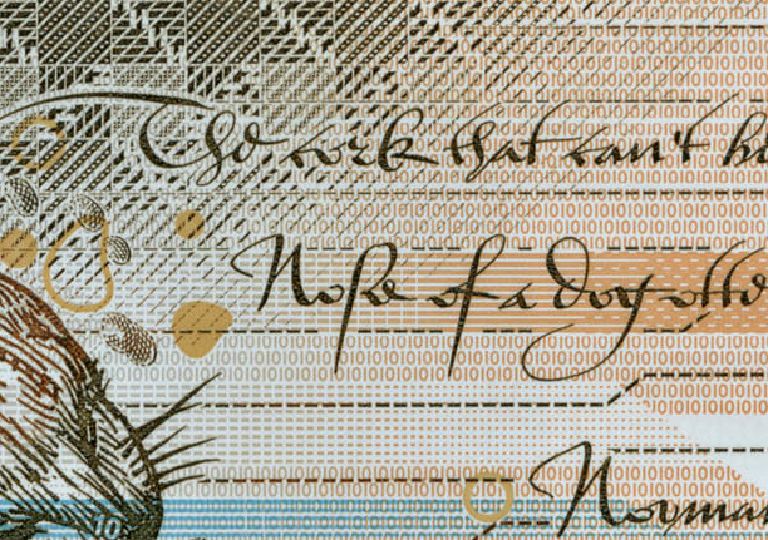 The cork that can't be
Nose of a dog otte
Norman
10